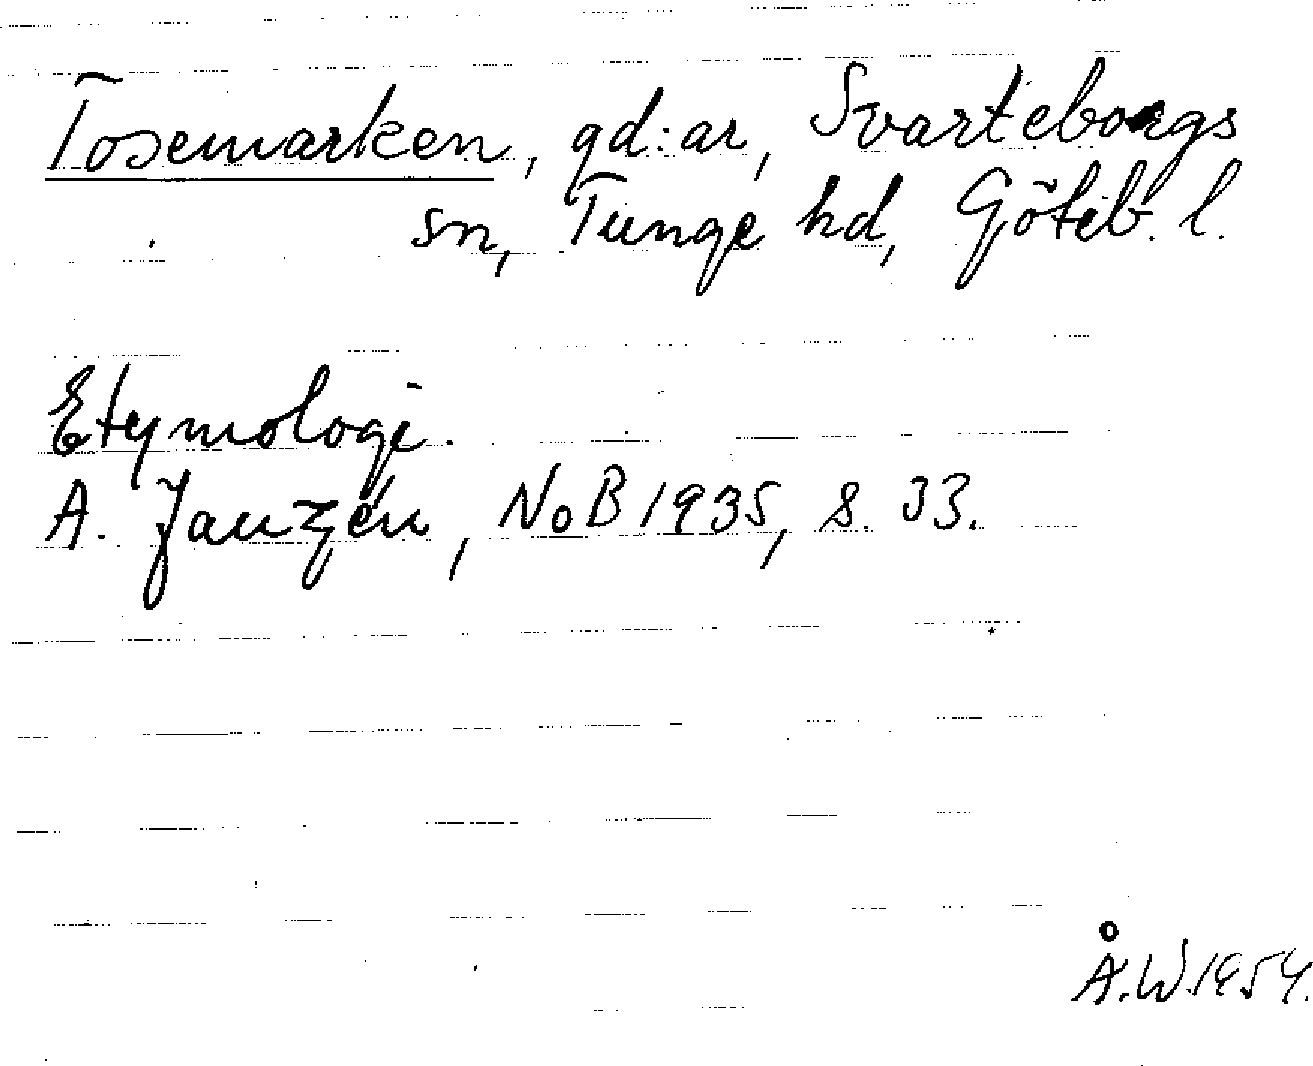 Tosemarken, gd:ar, Svarteborgs
sn, Tunge hd, Göteb. l.
Etymologi.
A. Janzén, NoB 1935, s. 33.
Å.W.1954.